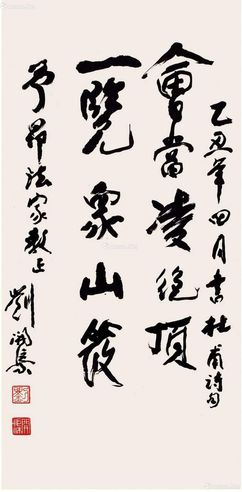 乙丑年四月書杜甫詩句
會當凌絕頂
一覽衆山
昂法家教正
劉開渠